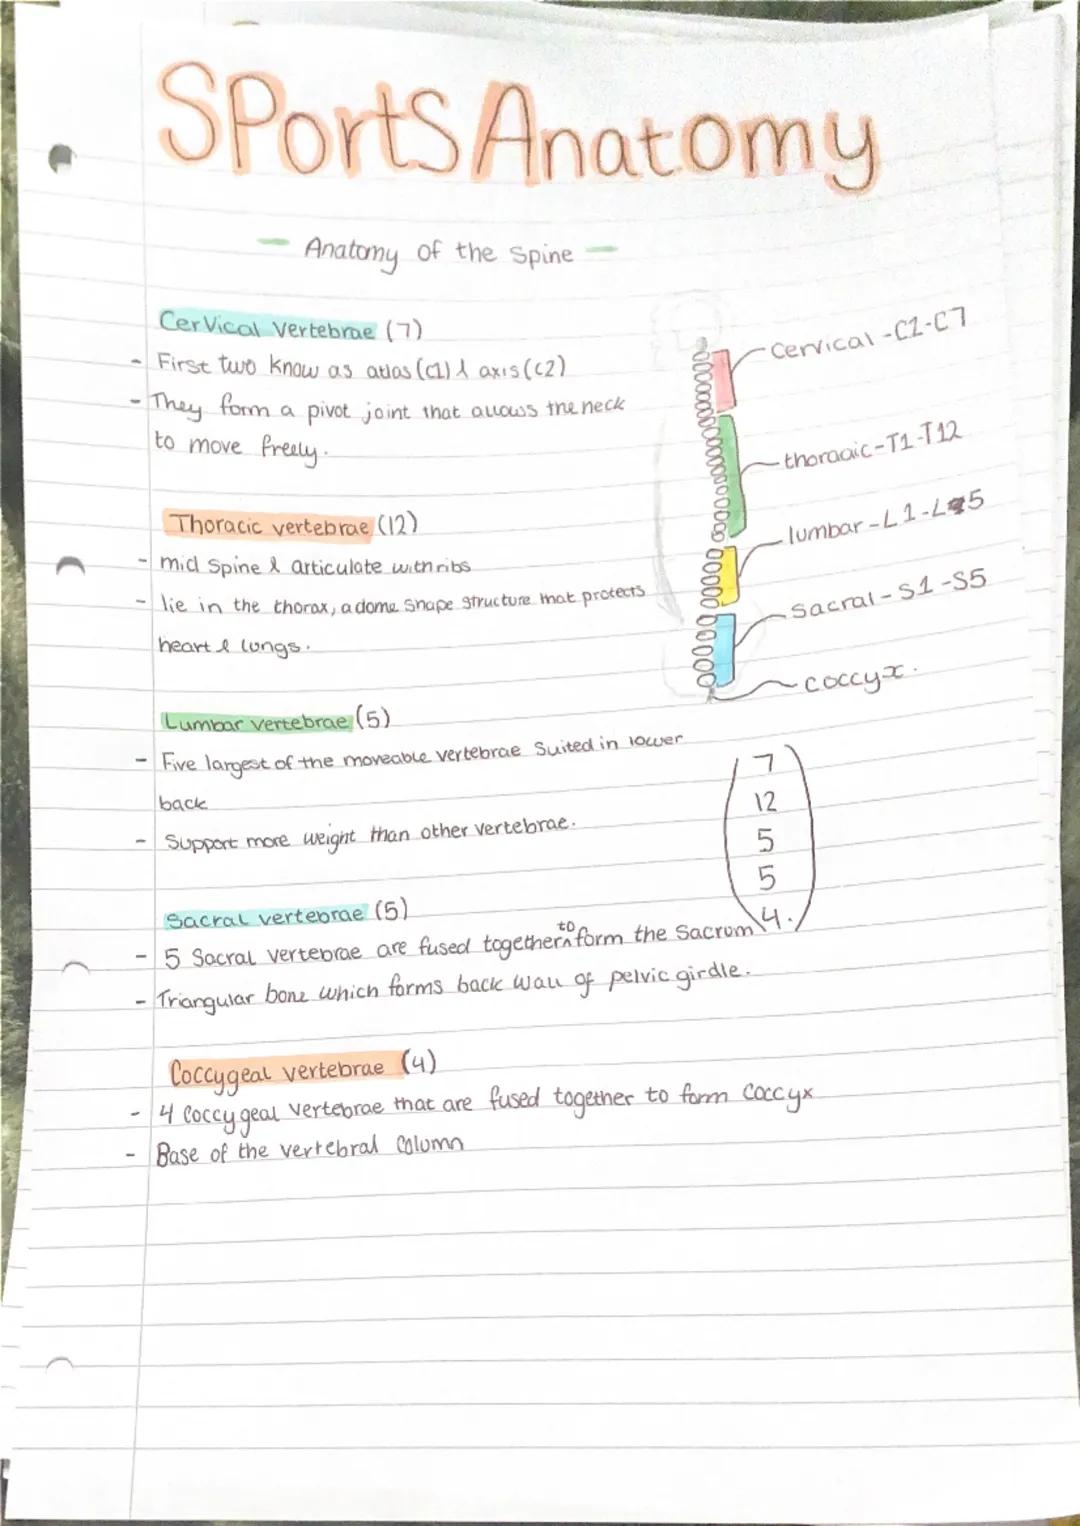 SPorts Anatomy
Anatomy of the Spine
Cervical Vertebrae (7)
- First two Know as atlas (C1) & axis (C2)
- They form a pivot joint that allows the neck
to move freely.
Thoracic vertebrae (12)
- mid Spine & articulate with ribs
- lie in the thorax, a dome shape structure that protects
heart & lungs.
Lumbar vertebrae (5)
- Five largest of the moveable vertebrae Suited in lower
back
- Support more weight than other vertebrae.
Sacral vertebrae (5)
- 5 Sacral vertebrae are fused together to form the Sacrum
- Triangular bone which forms back wall of pelvic girdle.
Coccygeal vertebrae (4)
- 4 Coccygeal Vertebrae that are fused together to form Coccyx
- Base of the vertebral Column
Cervical - C1 - C7
thoracic - T1 - T12
lumbar - L1 - L5
Sacral - S1 - S5
coccyx.
7
12
5
5
4.